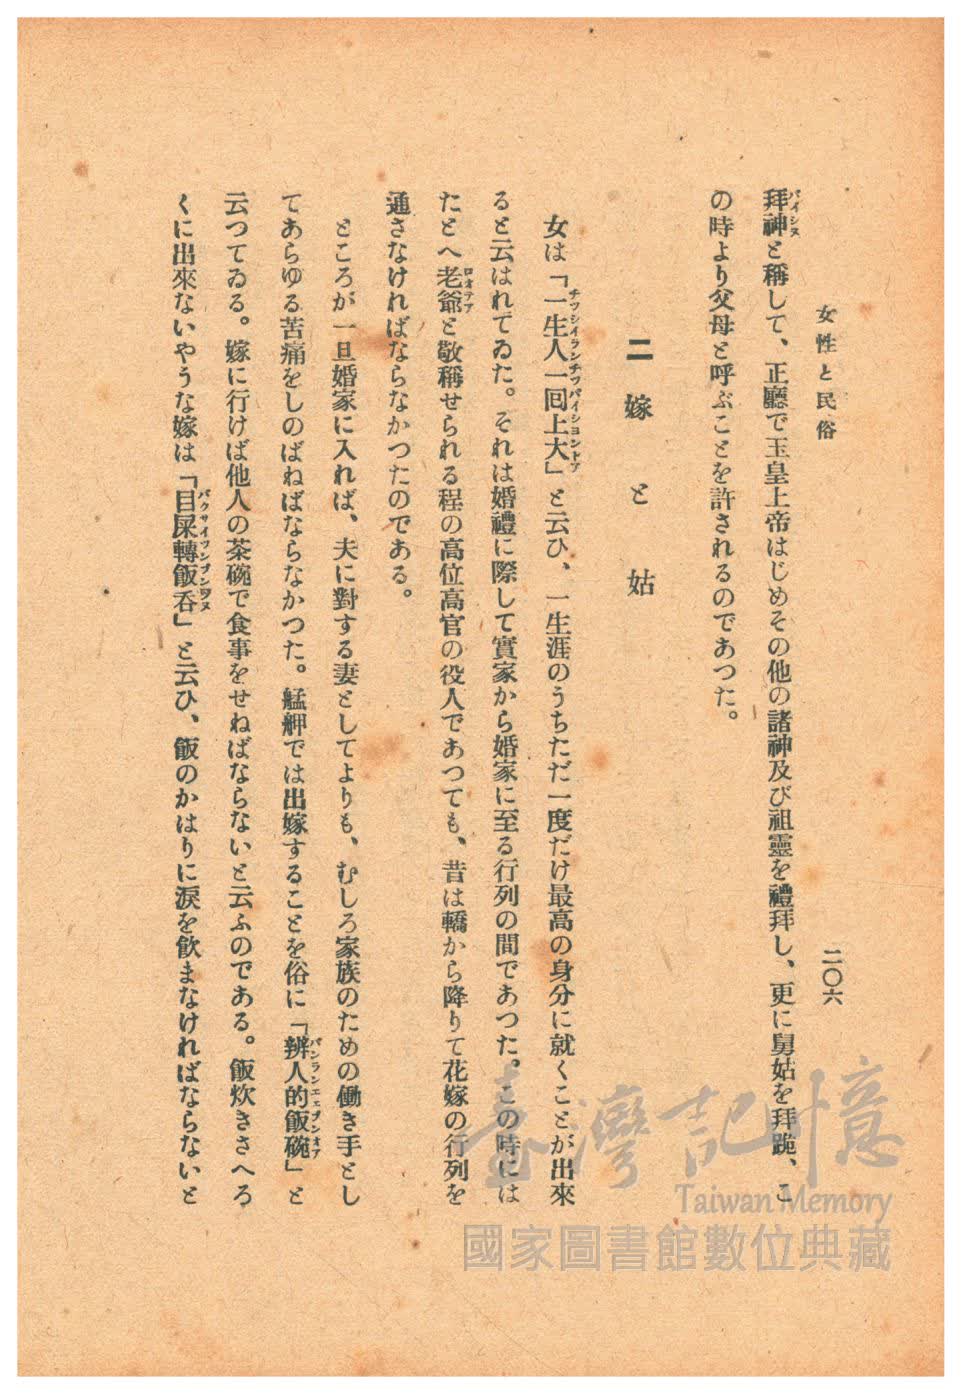 女性と民俗
二〇六
拜神と稱して、正廳で玉皇上帝はじめその他の諸神及び祖靈を禮拜し、更に舅姑を拜跪、こ
の時より父母と呼ぶことを許されるのであつた。
二 嫁と姑
女は「一生人一囘上大」と云ひ、一生涯のうちただ一度だけ最高の身分に就くことが出來
ると云はれてゐた。それは婚禮に際して實家から婚家に至る行列の間であつた。この時には
たとへ老爺と敬稱せられる程の高位高官の役人であつても、昔は轎から降りて花嫁の行列を
通さなければならなかつたのである。
ところが一旦婚家に入れば、夫に對する妻としてよりも、むしろ家族のための働き手とし
てあらゆる苦痛をしのばねばならなかつた。艋舺では出嫁することを俗に「辨人的飯碗」と
云つてゐる。嫁に行けば他人の茶碗で食事をせねばならないと云ふのである。飯炊きさへろ
くに出來ないやうな嫁は「目屎轉飯呑」と云ひ、飯のかはりに淚を飮まなければならないと
臺灣記憶
Taiwan Memory
國家圖書館數位典藏